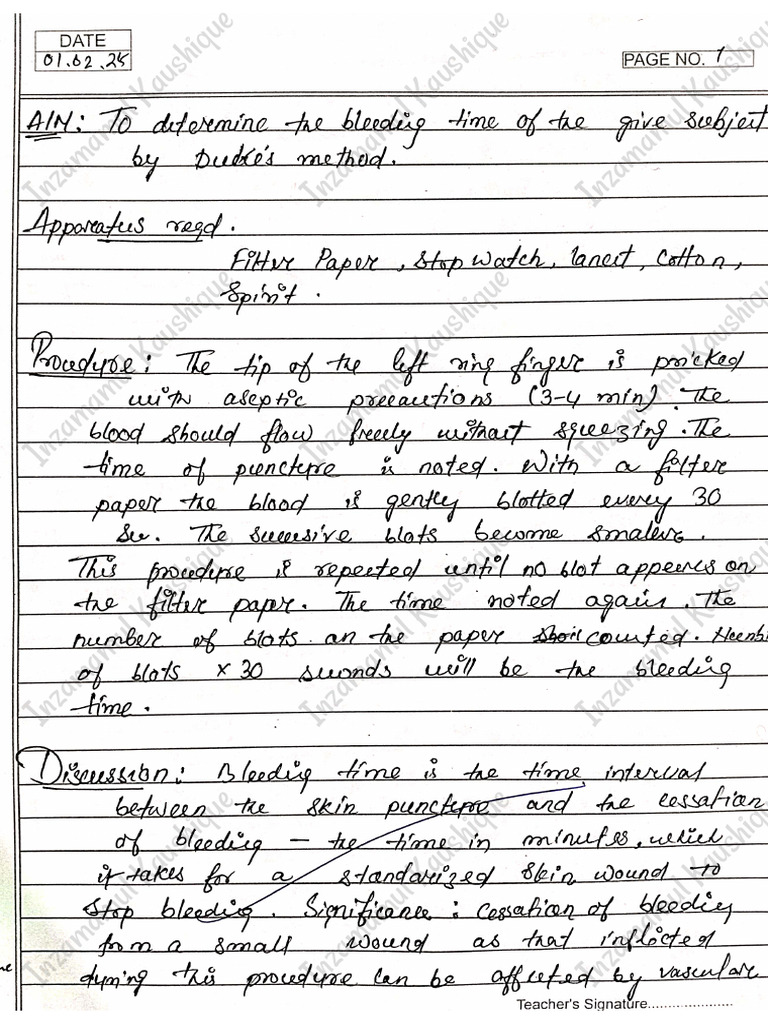 DATE
01.02.25
PAGE NO. 1
AIM: To determine the bleeding time of the give subject
by Duke's method.
Apparatus reqd.
Filter Paper, Stop watch, lancet, Cotton,
Spirit.
Procedure: The tip of the left ring finger is pricked
with aseptic precautions (3-4 min). The
blood should flow freely without squeezing. The
time of puncture is noted. With a filter
paper the blood is gently blotted every 30
Sec. The successive blots become smaller.
This procedure is repeated until no blot appears on
the filter paper. The time noted again. The
number of blots on the paper counted.
of blots × 30 seconds will be the bleeding
time.
Discussion: Bleeding time is the time interval
between the skin puncture and the cessation
of bleeding – the time in minutes, which
it takes for a standarized skin wound to
stop bleeding. Significance: Cessation of bleeding
from a small wound as that inflicted
during this procedure can be affected by vascular
Teacher's Signature.....................
Inzamamul Kaushique